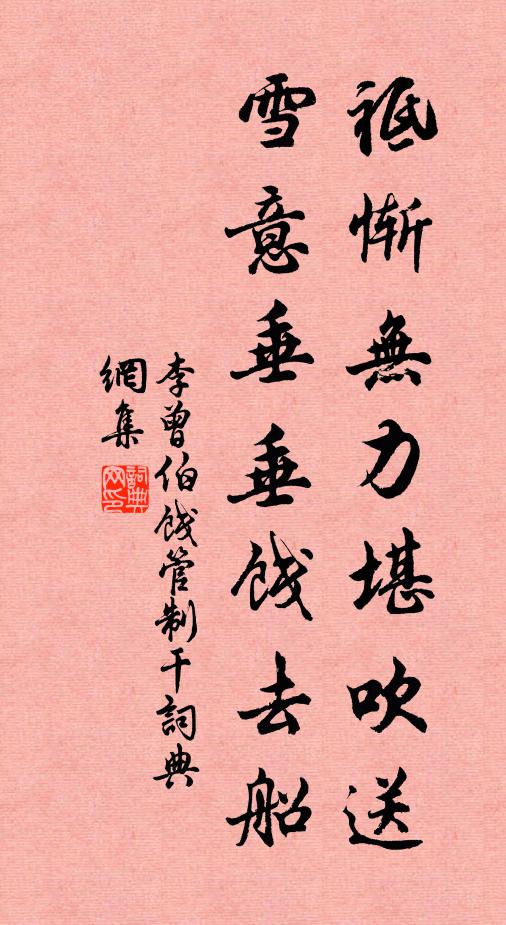 祗慚無力堪吹送
雪意垂垂餞去船
李曾伯餞管制干詞典
網集
詞典
网印